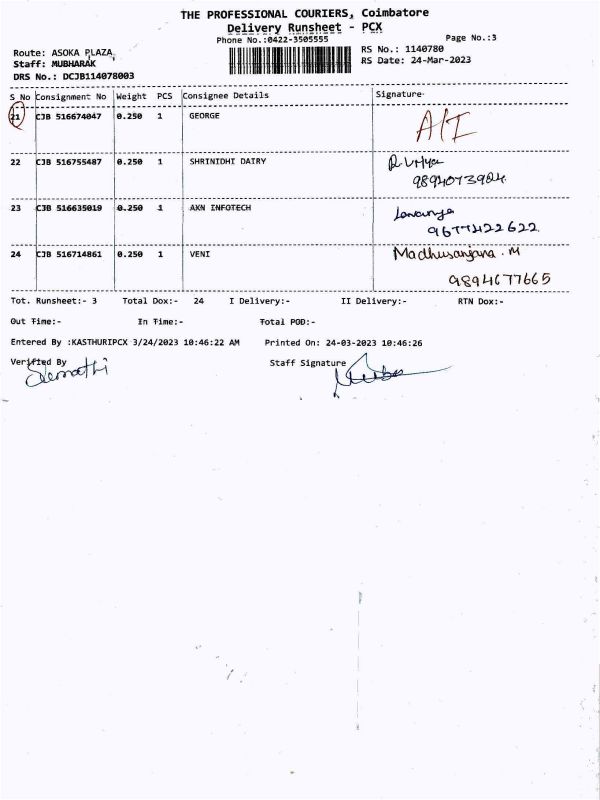 THE PROFESSIONAL COURIERS, Coimbatore
Delivery Runsheet - PCX
Phone No.:0422-3505555
Page No.:3
Route: ASOKA PLAZA,
RS No.: 1140780
Staff: MUBHARAK
RS Date: 24-Mar-2023
DRS No.: DCJB114078003
S No Consignment No Weight PCS Consignee Details Signature
21 CJB 516674047 0.250 1 GEORGE A/I
22 CJB 516755487 0.250 1 SHRINIDHI DAIRY
9894073904
23 CJB 516635019 0.250 1 AKN INFOTECH
9677422622
24 CJB 516714861 0.250 1 VENI Madhusanjana. M
9894677665
Tot. Runsheet:- 3 Total Dox:- 24 I Delivery:- II Delivery:- RTN Dox:-
Out Time:- In Time:- Total POD:-
Entered By :KASTHURIPCX 3/24/2023 10:46:22 AM Printed On: 24-03-2023 10:46:26
Verified By Staff Signature